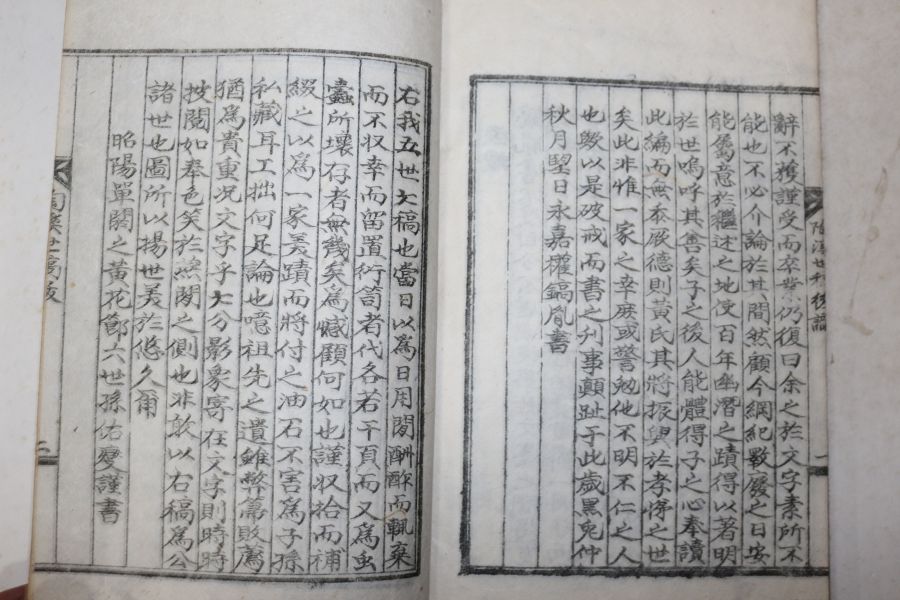 辭不獲謹受而卒業仍復曰余之於文字素所不
能也不必介論於其間然顧今綱紀斁廢之日安
能爲意於繼述之地使百年幽潛之蹟得以著明
於世嗚呼其善矣子之後人能體得子之心奉讀
此編而無忝厥德則黃氏其將振興於孝悌之世
矣此非惟一家之幸展或警勉他不明不仁之人
也略以是破戒而書之刋事顛趾于此歲黑兎仲
秋月朢日永嘉權鎬胤書
右我五世大稿也當日以爲日用閒酬酢而輒棄
而不収幸而留置衍笥者代各若干頁而又爲虫
蠹所壞存者無幾矣爲憾顧何如也謹収拾而補
綴之以爲一家羙蹟而將付之油石不害爲子孫
私藏耳工拙何足論也噫祖先之遺雖幣箒敗廌
猶爲貴重况文字乎大分影象寄在文字則時時
披閱如奉色笑於燕閒之側也非敢以右稿爲公
諸世也圖所以揚世美於悠久爾
昭陽單閼之黃花節六世孫佑燮謹書
世稿跋
二